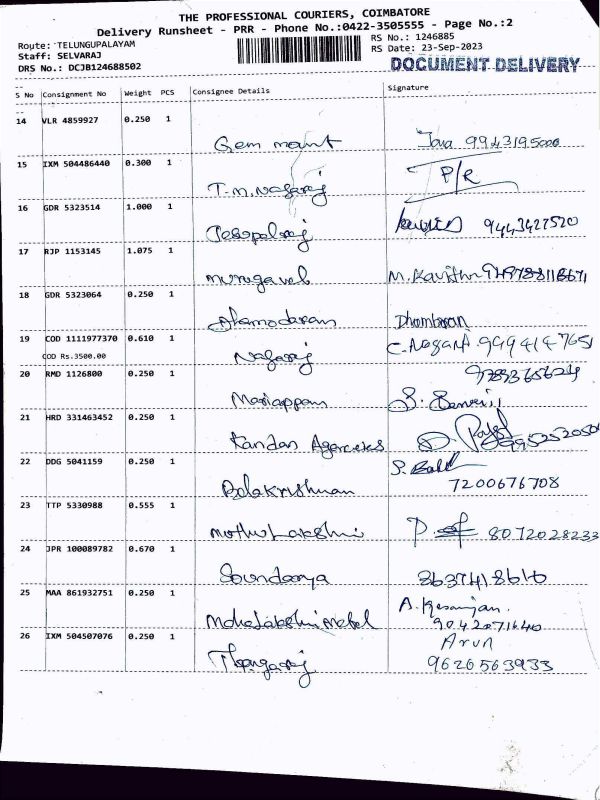 THE PROFESSIONAL COURIERS, COIMBATORE
Delivery Runsheet - PRR - Phone No.:0422-3505555 - Page No.:2
Route: TELUNGUPALAYAM
RS No.: 1246885
Staff: SELVARAJ
RS Date: 23-Sep-2023
DRS No.: DCJB124688502
DOCUMENT DELIVERY
S No Consignment No Weight PCS Consignee Details Signature
14 VLR 4859927 0.250 1
Gem mant 9943195000
15 IXM 504486440 0.300 1
T.M. Nagaraj P/R
16 GDR 5323514 1.000 1
9443427520
17 RJP 1153145 1.075 1
Murugavel M. Kavitha
18 GDR 5323064 0.250 1
Dhamodaran
19 COD 1111977370 0.610 1
COD Rs.3500.00
Nagaraj
20 RMD 1126800 0.250 1
Mariappan
21 HRD 331463452 0.250 1
Kandan Agencies
22 DDG 5041159 0.250 1
Balakrishnan 7200676708
23 TTP 5330988 0.555 1
Muthulakshmi 8072028233
24 JPR 100089782 0.670 1
Soundarya 8637418616
25 MAA 861932751 0.250 1
Mahalakshmi Metal 9042071640
26 IXM 504507076 0.250 1
Arun
Thangaraj 9626563933